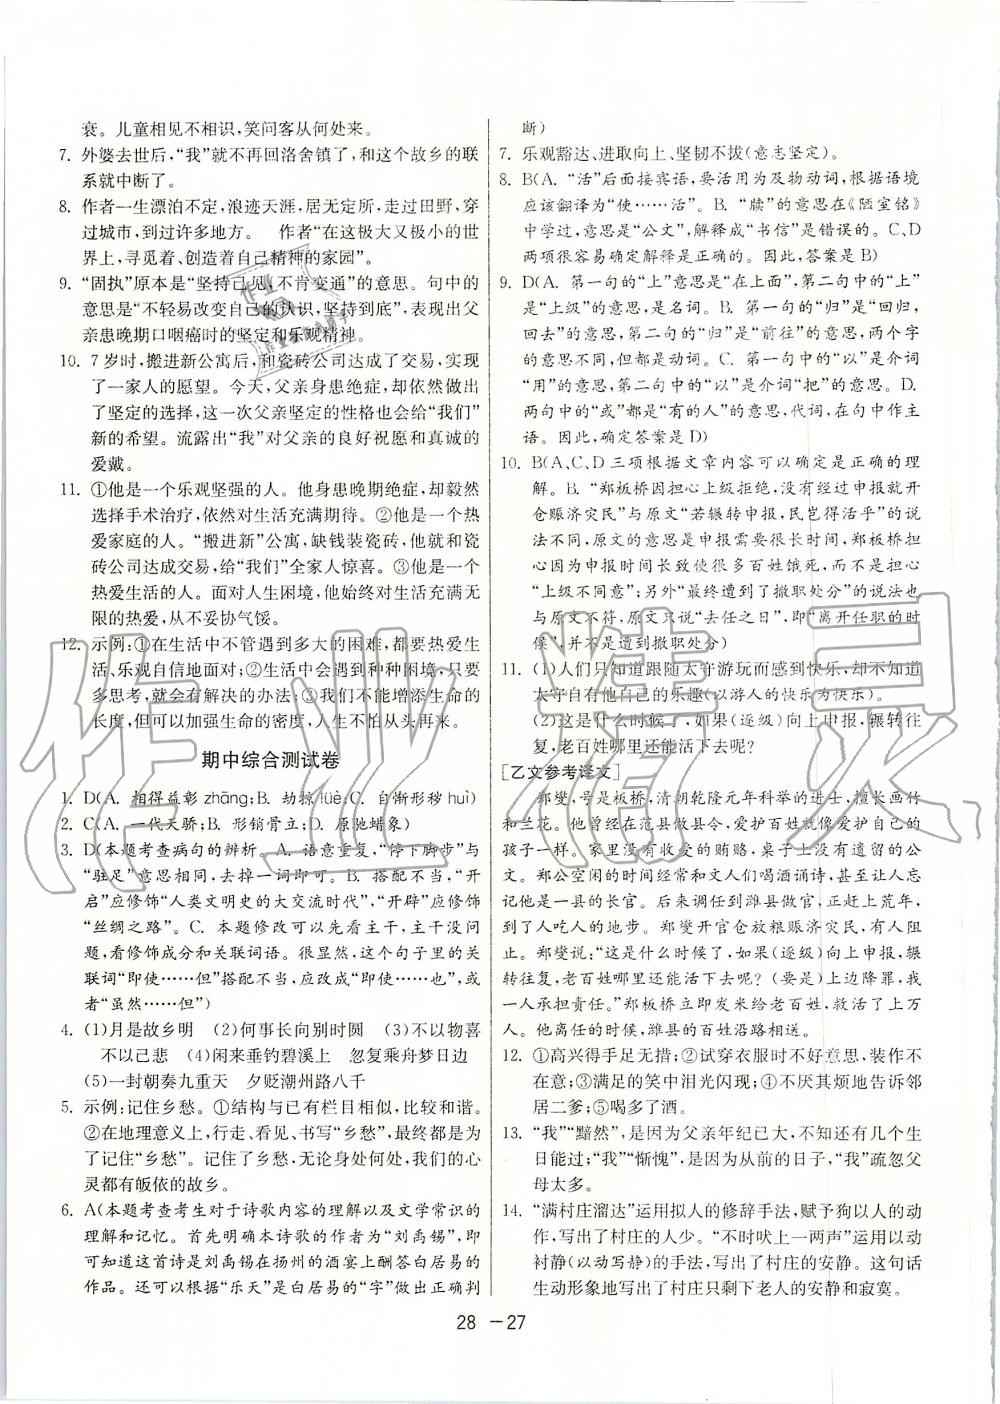 衰。儿童相见不相识,笑问客从何处来。
7. 外婆去世后,“我”就不再回洛舍镇了,和这个故乡的联
系就中断了。
8. 作者一生漂泊不定,浪迹天涯,居无定所,走过田野,穿
过城市,到过许多地方。 作者“在这极大又极小的世
界上,寻觅着、创造着自己精神的家园”。
9. “固执”原本是“坚持己见,不肯变通”的意思。句中的
意思是“不轻易改变自己的认识,坚持到底”,表现出父
亲患晚期口咽癌时的坚定和乐观精神。
10. 7岁时,搬进新公寓后,和瓷砖公司达成了交易,实现
了一家人的愿望。今天,父亲身患绝症,却依然做出
了坚定的选择,这一次父亲坚定的性格也会给“我们”
新的希望。流露出“我”对父亲的良好祝愿和真诚的
爱戴。
11. ①他是一个乐观坚强的人。他身患晚期绝症,却毅然
选择手术治疗,依然对生活充满期待。②他是一个热
爱家庭的人。“搬进新”公寓,缺钱装瓷砖,他就和瓷
砖公司达成交易,给“我们”全家人惊喜。③他是一个
热爱生活的人。面对人生困境,他依然对生活充满无
限的热爱,从不妥协气馁。
12. 示例:①在生活中不管遇到多大的困难,都要热爱生
活、乐观自信地面对;②生活中会遇到种种困境,只要
多思考,就会有解决的办法;③我们不能增添生命的
长度,但可以加强生命的密度,人生不怕从头再来。
期中综合测试卷
1. D(A. 相得益彰 zhāng;B. 劫掠 lüè;C. 自惭形秽 huì)
2. C(A. 一代天骄;B. 形销骨立;D. 原驰蜡象)
3. D(本题考查病句的辨析。A. 语意重复,“停下脚步”与
“驻足”意思相同,去掉一词即可。B. 搭配不当,“开
启”应修饰“人类文明史的大交流时代”,“开辟”应修饰
“丝绸之路”。C. 本题修改可以先看主干,主干没问
题,看修饰成分和关联词语。很显然,这个句子里的关
联词“即使……但”搭配不当,应改成“即使……也”,或
者“虽然……但”)
4. (1)月是故乡明 (2)何事长向别时圆 (3)不以物喜
不以己悲 (4)闲来垂钓碧溪上 忽复乘舟梦日边
(5)一封朝奏九重天 夕贬潮州路八千
5. 示例:记住乡愁。①结构与已有栏目相似,比较和谐。
②在地理意义上,行走、看见、书写“乡愁”,最终都是为
了记住“乡愁”。记住了乡愁,无论身处何处,我们的心
灵都有皈依的故乡。
6. A(本题考查考生对于诗歌内容的理解以及文学常识的
理解和记忆。首先明确本诗歌的作者为“刘禹锡”,即
可知道这首诗是刘禹锡在扬州的酒宴上酬答白居易的
作品。还可以根据“乐天”是白居易的“字”做出正确判
断)
7. 乐观豁达、进取向上、坚韧不拔(意志坚定)。
8. B(A. “活”后面接宾语,要活用为及物动词,根据语境
应该翻译为“使……活”。B. “牍”的意思在《陋室铭》
中学过,意思应当是“公文”,解释成“书信”是错误的。C、D
两项很容易确定解释是正确的。因此,答案是B)
9. D(A. 第一句的“上”意思是“在上面”,第二句中的“上”
是“上级”的意思,是名词。B. 第一句的“归”是“回归,
回去”的意思,第二句的“归”是“前往”的意思,两个字
的意思不同,但都是动词。C. 第一句中的“以”是介词
“用”的意思,第二句中的“以”是介词“把”的意思。D.
两句中的“或”都是“有的人”的意思,代词,在句中作主
语。因此,确定答案是D)
10. B(A、C、D三项根据文章内容可以确定是正确的理
解。B. “郑板桥因担心上级拒绝,没有经过申报就开
仓赈济灾民”与原文“若辗转申报,民岂得活乎”的说
法不同,原文的意思是申报需要很长时间,郑板桥担
心因为申报时间长致使很多百姓饿死,而不是因为
“上级不同意”;另“最终遭到了撤职处分”的说法也
与原文不符,原文只说“去任之日”,即“离开任职的时
候”,并不是遭到撤职处分)
11. (1)人们只知道跟随太守游玩而感到快乐,却不知道
太守自有他自己的乐趣(以游人的快乐为快乐)。
(2)这是什么时候了,如果(逐级)向上申报,辗转往
复,老百姓哪里还能活下去呢?
[乙文参考译文]
郑燮,号是板桥,清朝乾隆元年科举的进士,擅长画竹
和兰花。他曾经在范县做县令,爱护百姓就像爱护自己的
孩子一样。家里没有收受的贿赂,桌子上没有遗留的公
文。郑公空闲的时间经常和文人们喝酒诵诗,甚至让人忘
记他是一县的长官。后来调任到潍县做官,正赶上荒年,
到了人吃人的地步。郑燮开官仓放粮赈济灾民,有人阻
止。郑燮说:“这是什么时候了,如果(逐级)向上申报,辗
转往复,老百姓哪里还能活下去呢?(要是)上边降罪,我
一人承担责任。”郑板桥立即发米给老百姓,救活了上万
人。他离任的时候,潍县的百姓沿路相送。
12. ①高兴得手足无措;②试穿衣服时不好意思,装作不
在意;③满足的笑中泪光闪现;④不厌其烦地告诉邻
居二爹;⑤喝多了酒。
13. “我”“黯然”,是因为父亲年纪已大,不知还有几个生
日能过;“我”“惭愧”,是因为从前的日子,“我”疏忽父
母太多。
14. “满村庄溜达”运用拟人的修辞手法,赋予狗以人的动
作,写出了村庄的人少。“不时吠上一两声”运用以动
衬静(以动写静)的手法,写出了村庄的安静。这句话
生动形象地写出了村庄只剩下老人的安静和寂寞。
28 -27
作业精灵